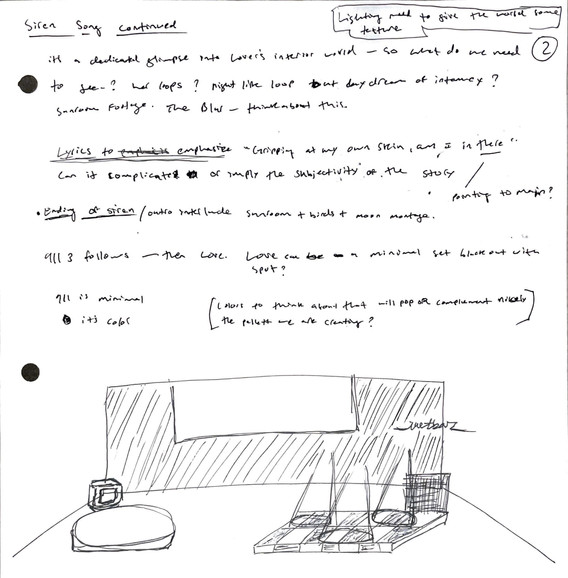 Siren Song continued
Lighting need to give the world some
texture
2
its a dedicated glimpse into Lover's interior world — so what do we need
to see? her props? night like loop but day dream of intimacy?
Sunroom footage. The Blur — think about this.
Lyrics to emphasize "Gripping at my own skin, am I in there".
Can it complicated or imply the subjectivity of the story
pointing to major?
• Ending of siren / outro interlude sunroom + birds + moon montage.
911 3 follows — then Love. Love can be a minimal set blackout with
spot?
911 is minimal
its color
[Colors to think about that will pop or complement nicely
the palette we are creating?]